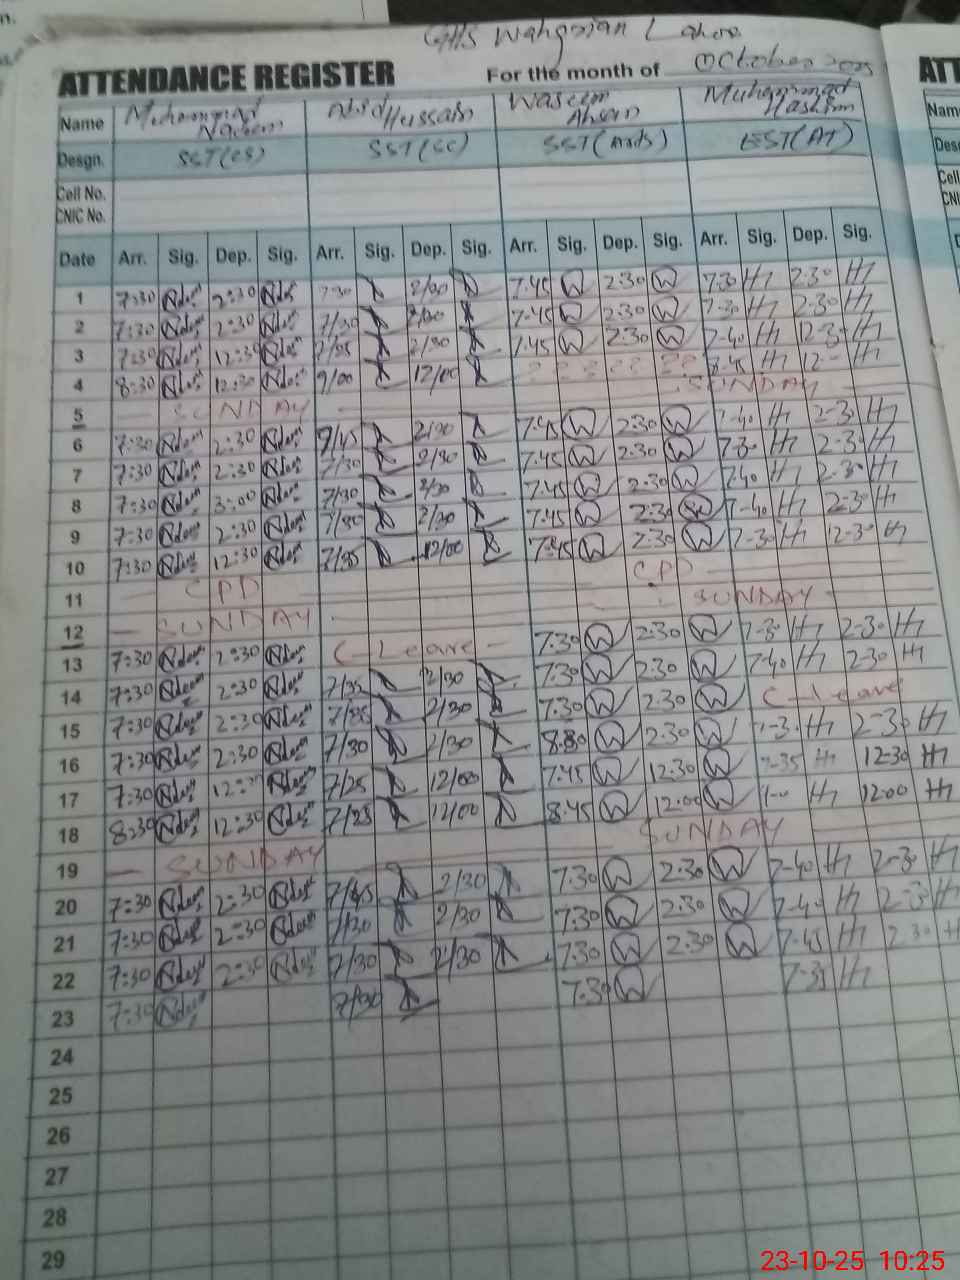 GHS Wahgrian Lahore
ATTENDANCE REGISTER For the month of October 2025
Name Muhammad Nadeem Abid Hussain Waseem Ahsan Muhammad Hashim
Desgn. SST(CS) SST(SC) SST(Arts) EST(AT)
Cell No.
CNIC No.
Date Arr. Sig. Dep. Sig. Arr. Sig. Dep. Sig. Arr. Sig. Dep. Sig. Arr. Sig. Dep. Sig.
1 7:30 2:30 7:30 2/30 7.45 W 2:30 W 7-30 H 2-30 H
2 7:30 2:30 7/30 2/30 7.45 W 2:30 W 7-30 H 2-30 H
3 7:30 12:30 7.45 W 2:30 W 7-40 H 12-30 H
4 8:30 12:30 9/00 12/00 8-45 H 12- H
5 SUNDAY SUNDAY
6 7:30 2:30 2/30 7.45 W 2:30 W 7-40 H 2-30 H
7 7:30 2:30 7/30 2/30 7.45 W 2:30 W 7-30 H 2-30 H
8 7:30 3:00 7/30 2/30 7.45 W 2:30 W 7-40 H 2-30 H
9 7:30 2:30 7/30 2/30 7.45 W 2:30 7-40 H 2-30 H
10 7:30 12:30 12/00 7.45 W 2:30 W 7-30 H 12-30 H
11 CPD CPD
12 SUNDAY SUNDAY
13 7:30 2:30 C-Leave 7.30 W 2:30 W 7-30 H 2-30 H
14 7:30 2:30 7/35 2/30 7.30 W 2:30 W 7-40 H 2-30 H
15 7:30 2:30 2/30 7.30 W 2.30 W C-Leave
16 7:30 2:30 7/30 2/30 8.30 W 2.30 W 7-30 H 2-30 H
17 7:30 7/25 12/00 7.45 W 12.30 W 7-35 H 12-30 H
18 8:30 12:30 7/25 12/00 8.45 W 12.00 W H 12-00 H
19 SUNDAY SUNDAY
20 7:30 2:30 7/45 2/30 7.30 W 2.30 W 7-40 H 2-30 H
21 7:30 2:30 7/30 2/30 7.30 W 2.30 W 7-40 H 2-30 H
22 7:30 2:30 7/30 2/30 7.30 W 2.30 W 7-45 H 2-30 H
23 7:30 7/30 7.30 W H
24
25
26
27
28
29
23-10-25 10:25